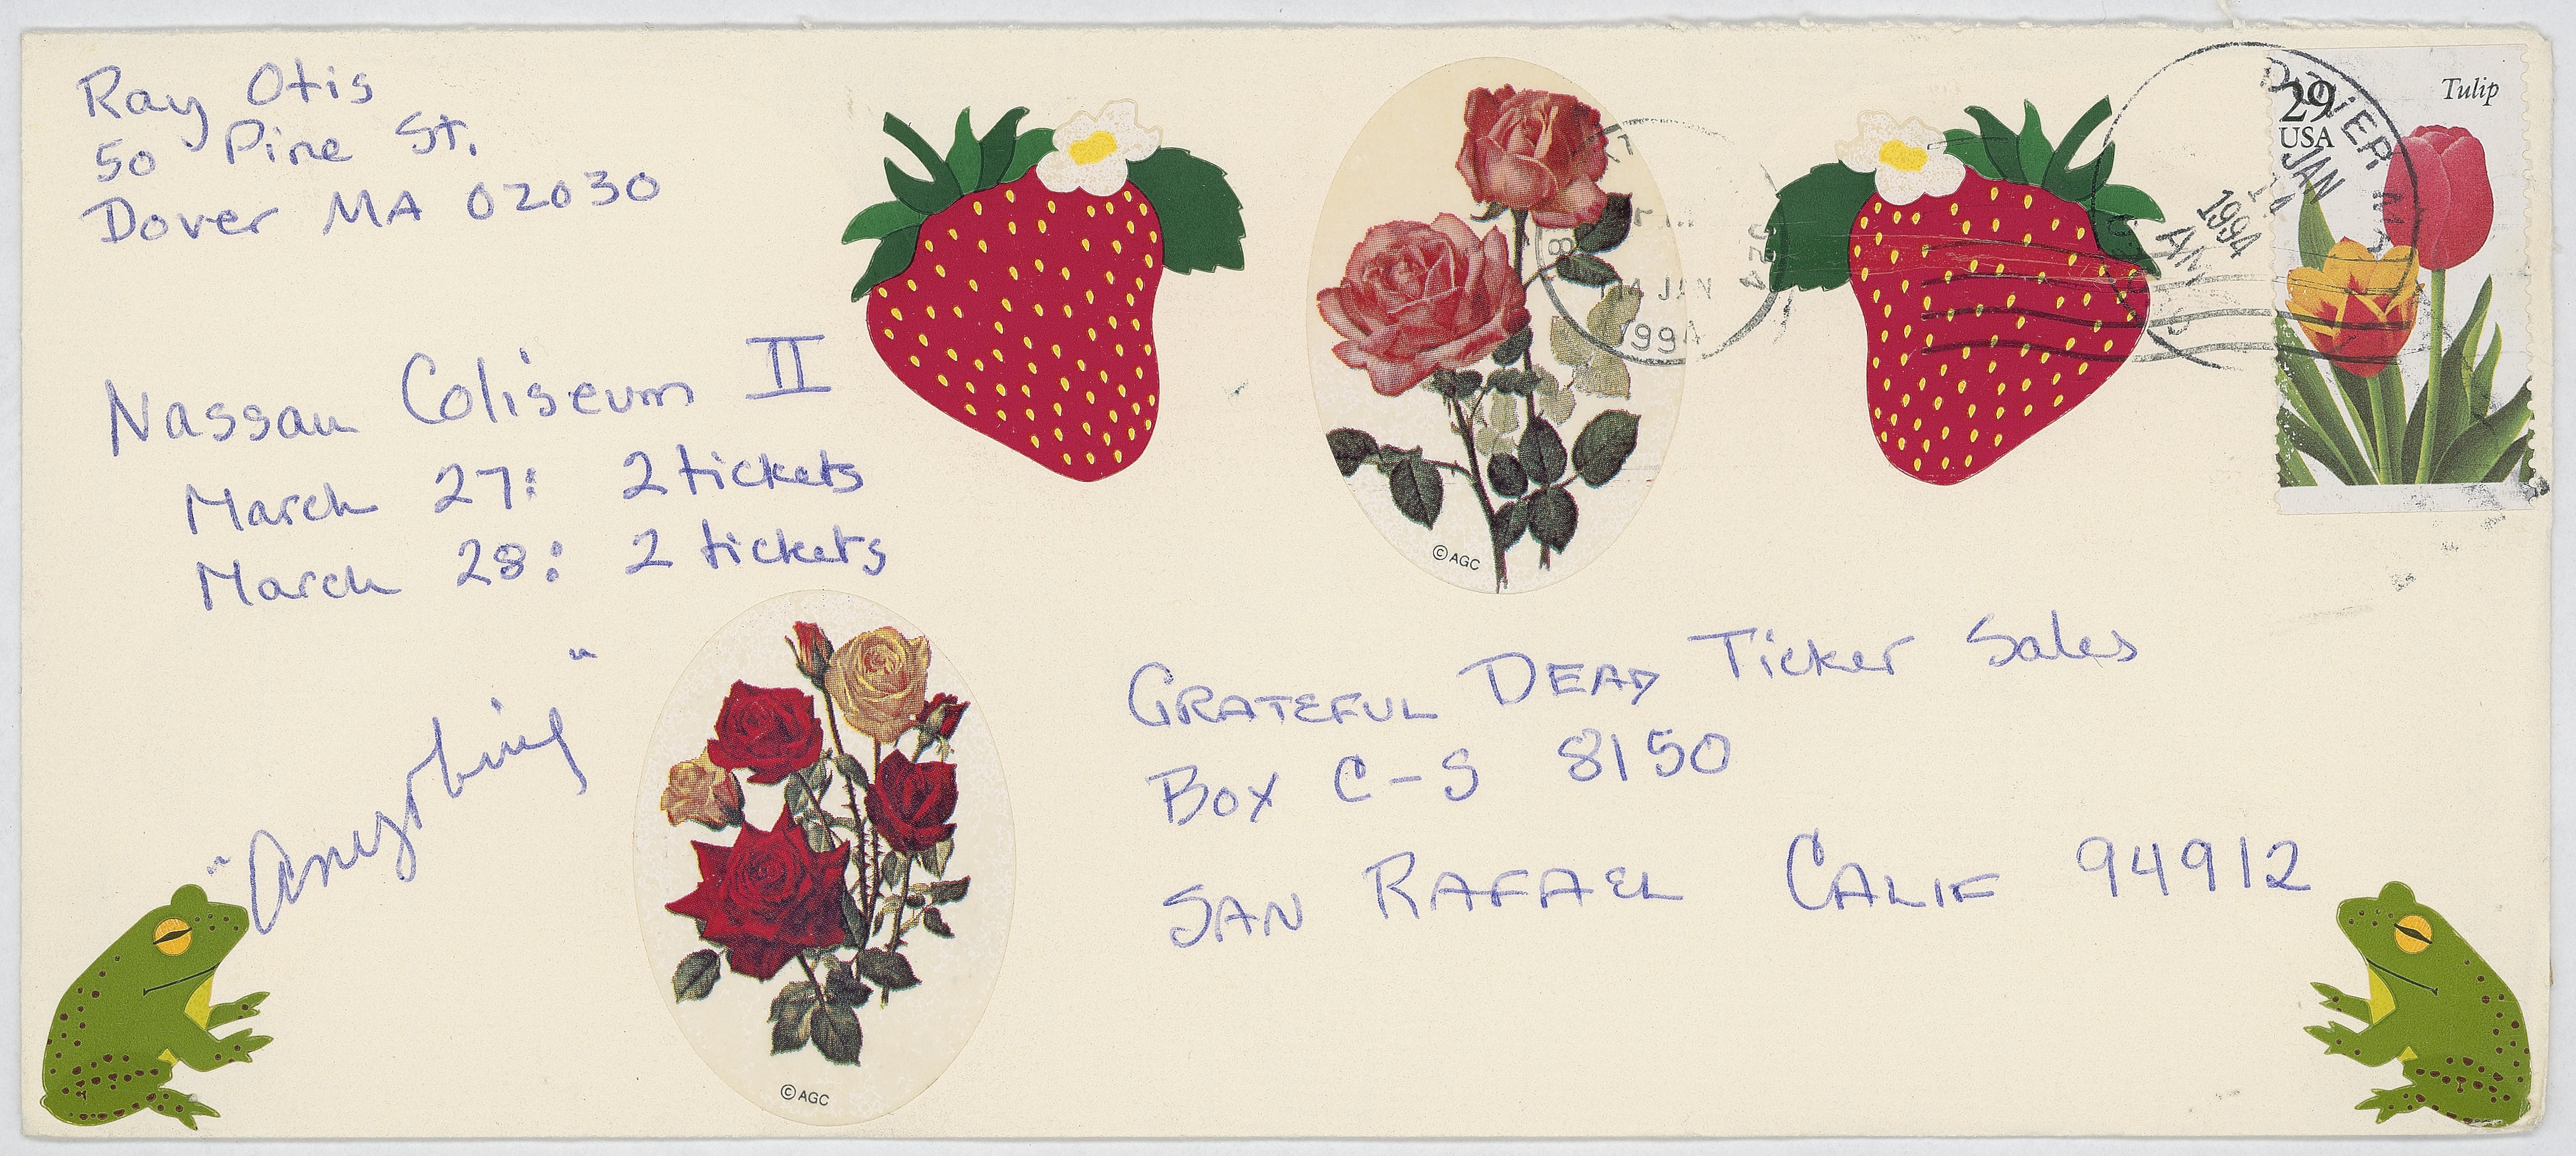 Ray Otis
50 Pine St.
Dover MA 02030
Nassau Coliseum II
March 27: 2 tickets
March 28: 2 tickets
"Anything"
GRATEFUL DEAD Ticket Sales
Box C-S 8150
SAN RAFAEL CALIF 94912
29
USA
Tulip
DOVER MA
JAN
14
1994
AM
14 JAN
1994
© AGC
© AGC